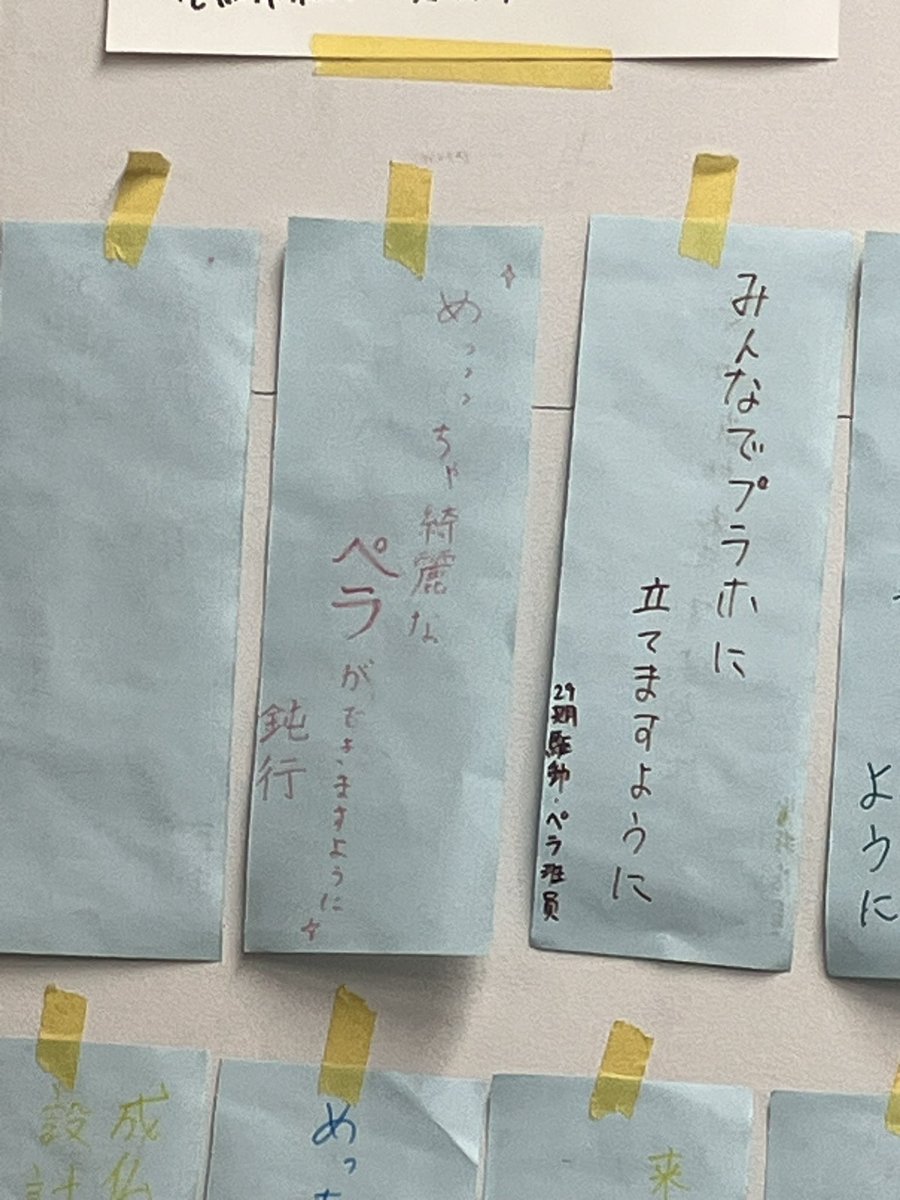 めっっっちゃ綺麗な
ペラができますように
鈍行
みんなでプラホに
立てますように
29期駆動・ペラ班員
ように
成仏
設計
めっち
来